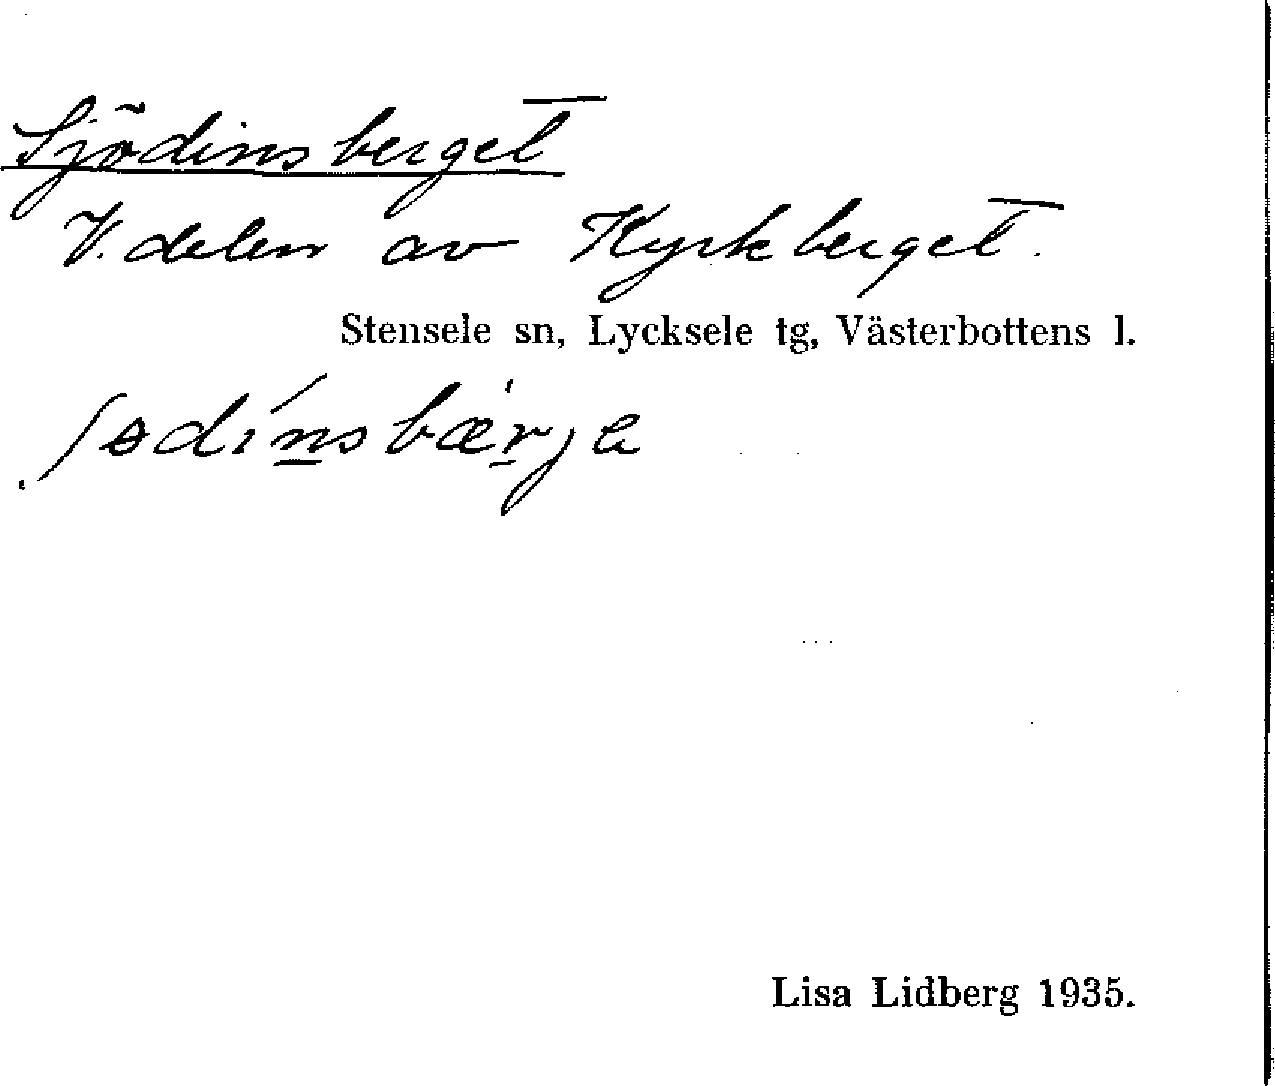 Sjödinsberget
V. delen av Kyrkberget.
Stensele sn, Lycksele tg, Västerbottens l.
ʃɵdínsbær̀jɐ
Lisa Lidberg 1935.